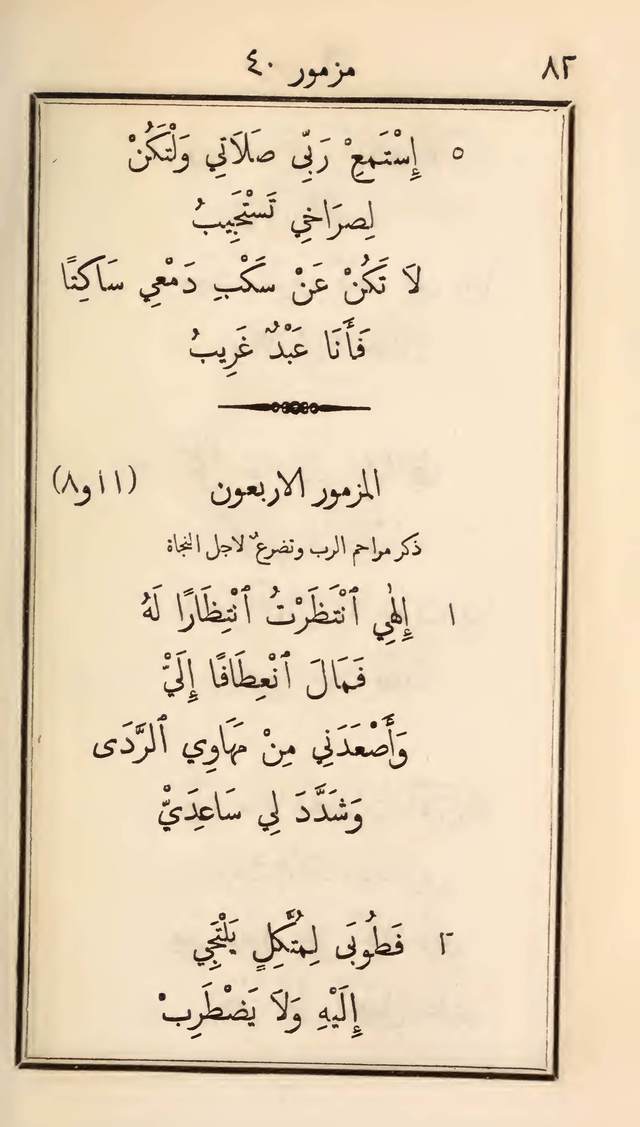 ٨٢ مزمور ٤٠
٥ إِسْتَمِعْ رَبِّي صَلَاتِي وَلْتَكُنْ
لِصِرَاخِي تَسْتَجِيبُ
لَا تَكُنْ عَنْ سَكْبِ دَمْعِي سَاكِتًا
فَأَنَا عَبْدٌ غَرِيبُ
المزمور الاربعون (١١ و٨)
ذكر مراحم الرب وتضرعٌ لاجل النجاة
١ إِلٰهِي ٱنْتَظَرْتُ ٱنْتِظَارًا لَهُ
فَمَالَ ٱنْعِطَافًا إِلَيّْ
وَأَصْعَدَنِي مِنْ مَهَاوِي ٱلرَّدَى
وَشَدَّدَ لِي سَاعِدَيّْ
٢ فَطُوبَى لِمُتَّكِلٍ يَلْتَجِي
إِلَيْهِ وَلَا يَضْطَرِبْ